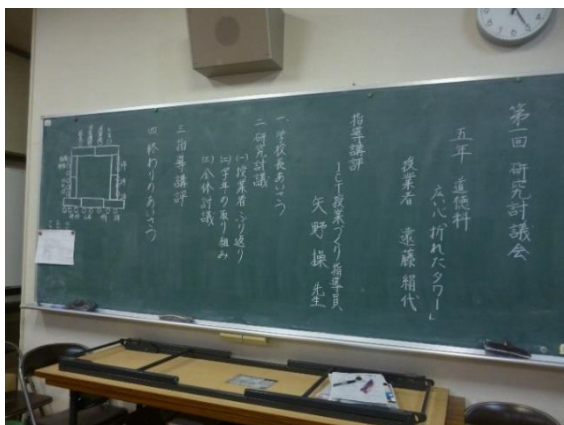 第一回 研究討議会
五年 道徳科
広い心「折れたタワー」
授業者 遠藤 絹代
指導講評
ICT授業づくり指導員
矢野 操 先生
一 学校長あいさつ
二 研究討議
(一) 授業者ふり返り
(二) 学年の取り組み
(三) 全体討議
三 指導講評
四 終わりのあいさつ